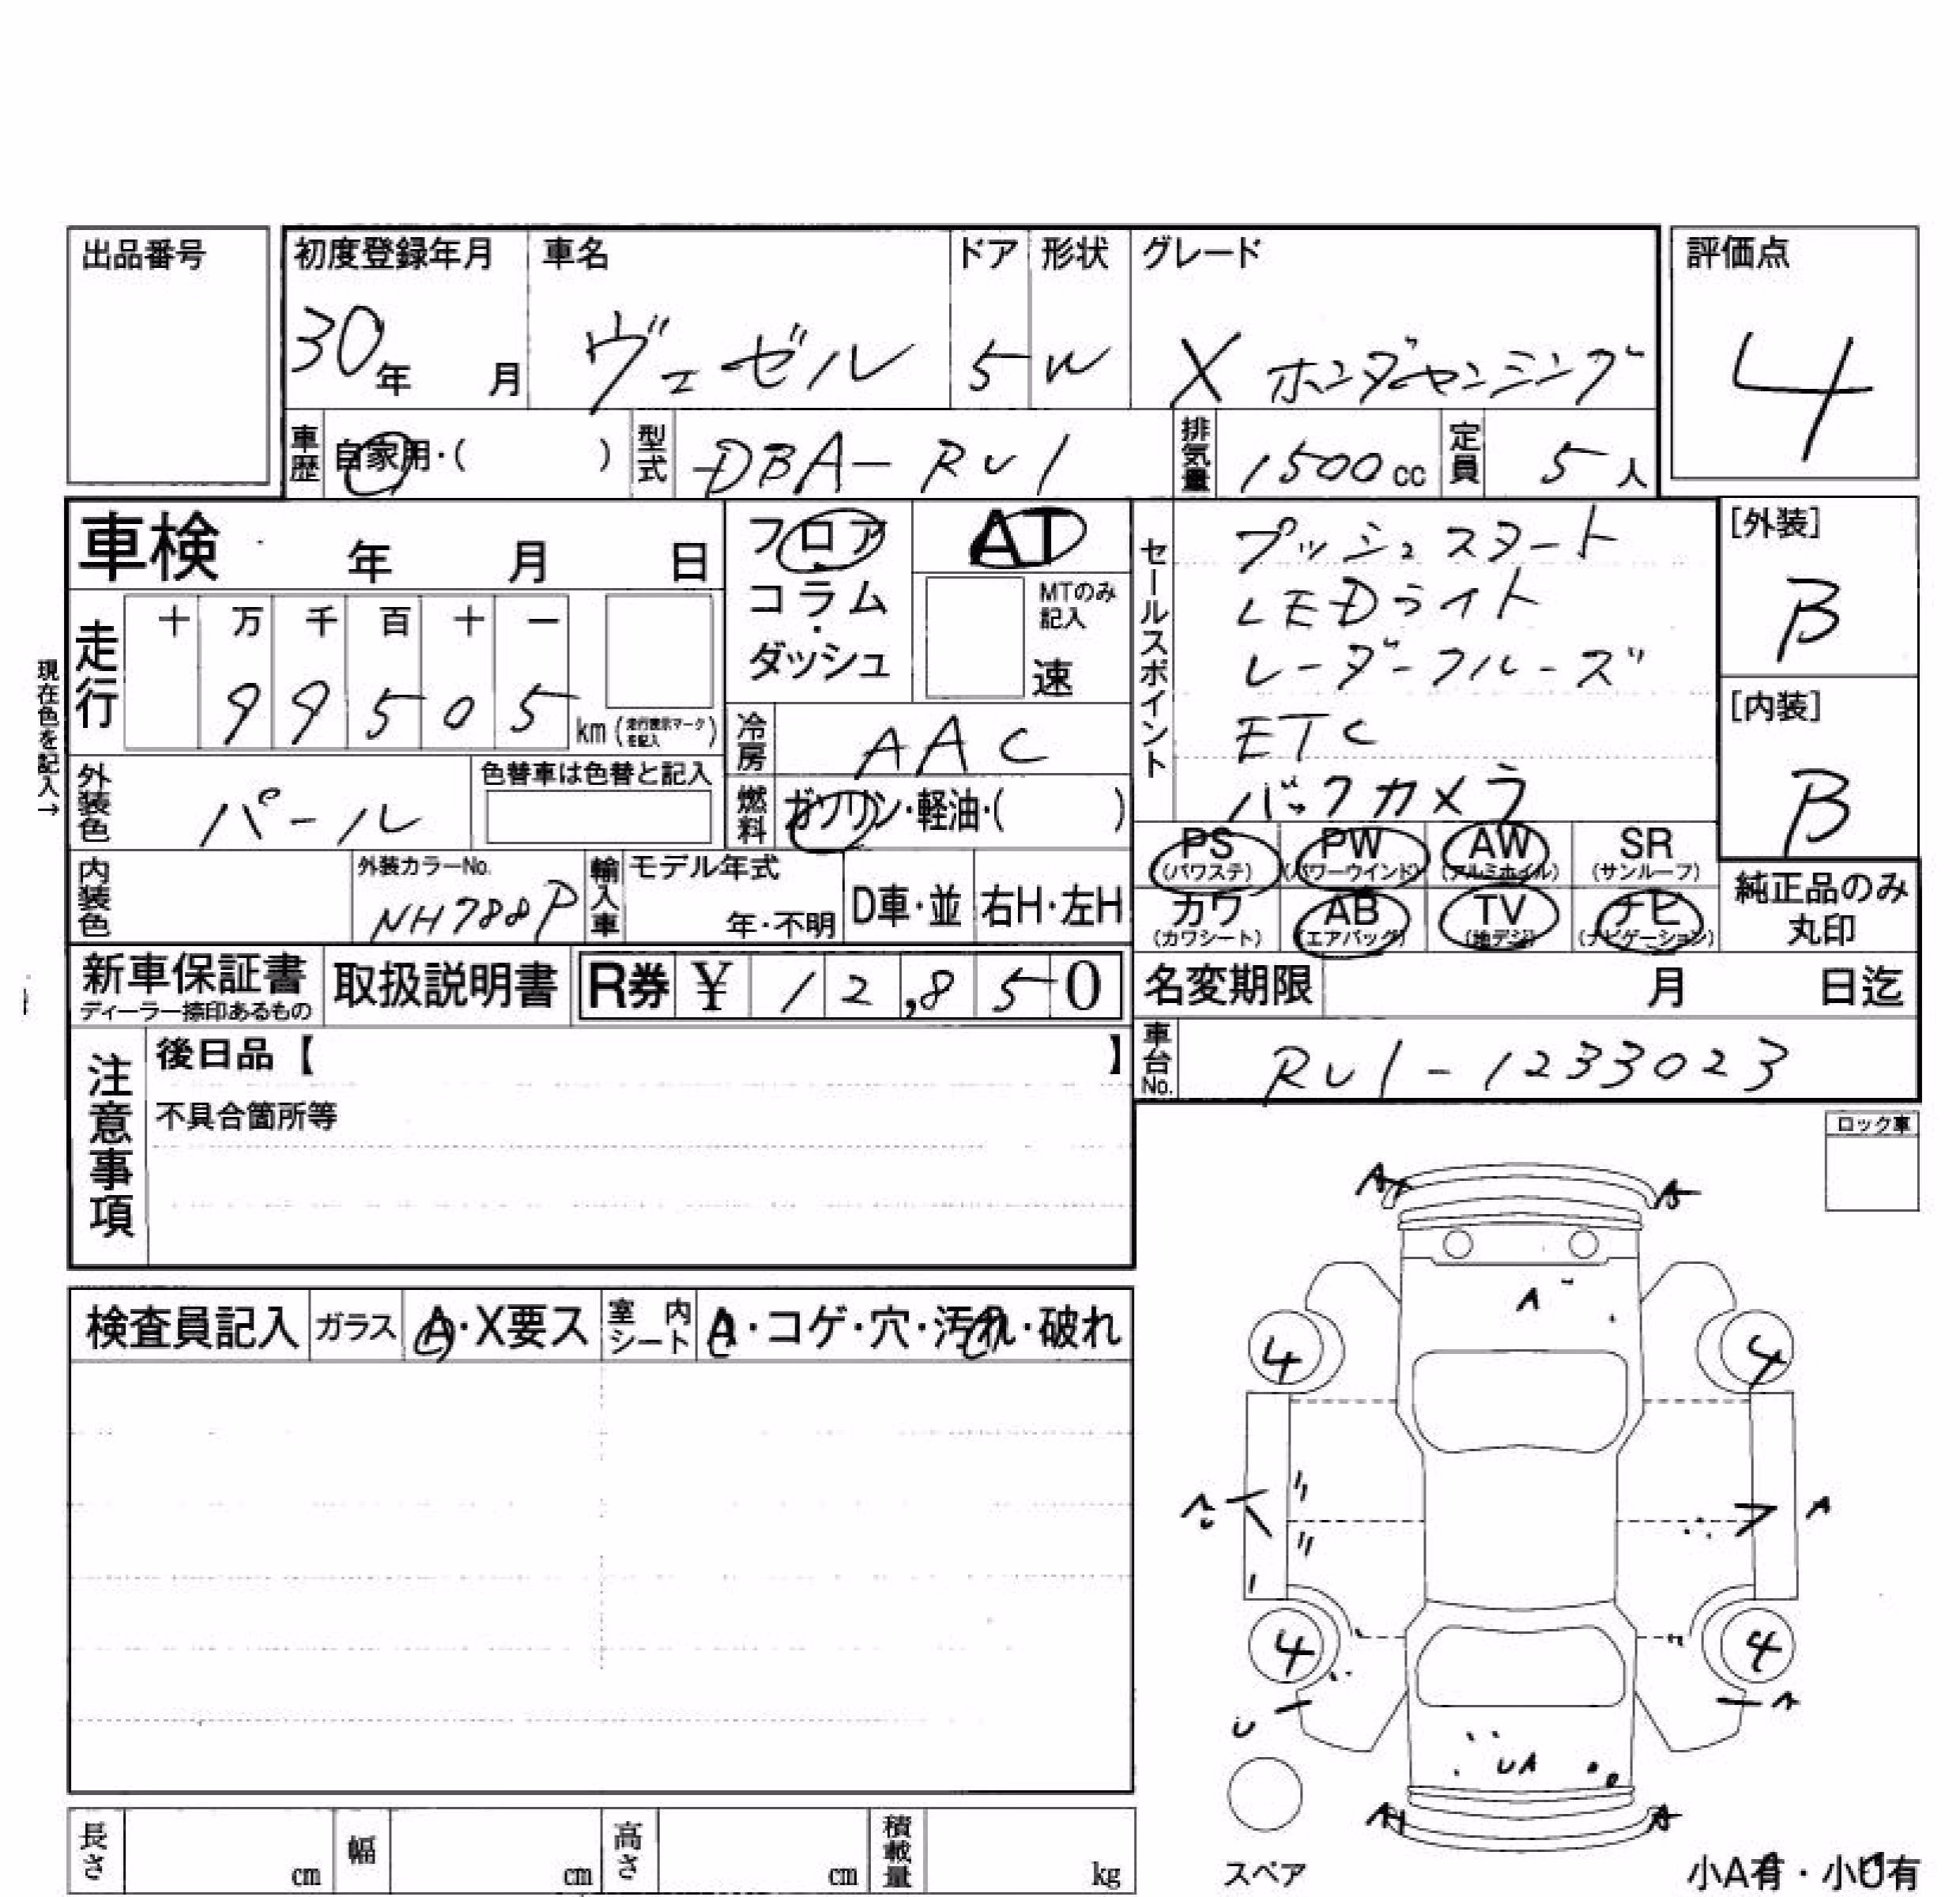 出品番号
初度登録年月 車名 ドア 形状 グレード 評価点
30年 月 ヴェゼル 5 W X ホンダセンシング 4
車歴 自家用・( ) 型式 DBA-RU1 排気量 1500cc 定員 5人
車検 年 月 日
フロア・コラム・ダッシュ
AT
MTのみ記入
速
セールスポイント
プッシュスタート
LEDライト
レーダークルーズ
ETC
バックカメラ
[外装]
B
[内装]
B
現在色を記入→
走行 十 万 千 百 十 一
99505 km (走行表示マークを記入)
冷房 AAC
外装色 パール 色替車は色替と記入
燃料 ガソリン・軽油・( )
PS (パワステ) PW (パワーウインド) AW (アルミホイル) SR (サンルーフ)
カワ (カワシート) AB (エアバッグ) TV (地デジ) ナビ (ナビゲーション)
純正品のみ
丸印
内装色 外装カラーNo. NH788P 輸入車 モデル年式 年・不明 D車・並 右H・左H
新車保証書 ディーラー捺印あるもの 取扱説明書 R券 ¥ 12,850
名変期限 月 日迄
車台No. RU1-1233023
注意事項
後日品【 】
不具合箇所等
ロック車
検査員記入 ガラス A・X要ス 室内シート A・コゲ・穴・汚れ・破れ
A A
A
4 4
A
4 4
U A
UA
A A
スペア
小A有・小U有
長さ cm 幅 cm 高さ cm 積載量 kg